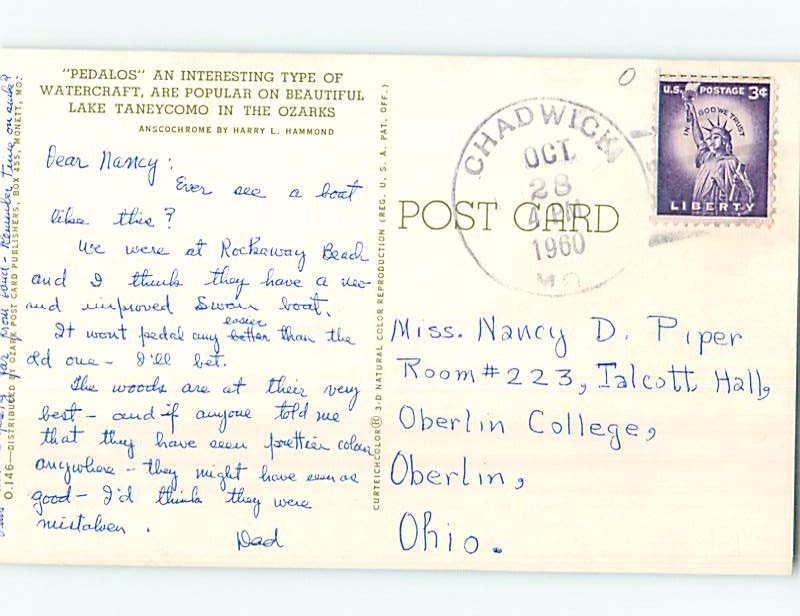 "PEDALOS" AN INTERESTING TYPE OF
WATERCRAFT, ARE POPULAR ON BEAUTIFUL
LAKE TANEYCOMO IN THE OZARKS
ANSCOCHROME BY HARRY L. HAMMOND
Dear Nancy:
Ever see a boat
like this?
We were at Rockaway Beach
and I think they have a new
and improved Swan boat.
easier
It wont pedal any better than the
old one - I'll bet.
The woods are at their very
best - and if anyone told me
that they have seen prettier colour
anywhere - they might have seen as
good - I'd think they were
mistaken.
Dad
far from land - Remember time on lake?
O.146—DISTRIBUTED BY OZARK POST CARD PUBLISHERS, BOX 455, MONETT, MO.
CURTEICHCOLOR® 3-D NATURAL COLOR REPRODUCTION (REG. U. S. A. PAT. OFF.)
POST CARD
CHADWICK
OCT
28
PM
1960
MO.
U.S. POSTAGE 3¢
IN GOD WE TRUST
LIBERTY
Miss. Nancy D. Piper
Room #223, Talcott Hall,
Oberlin College,
Oberlin,
Ohio.